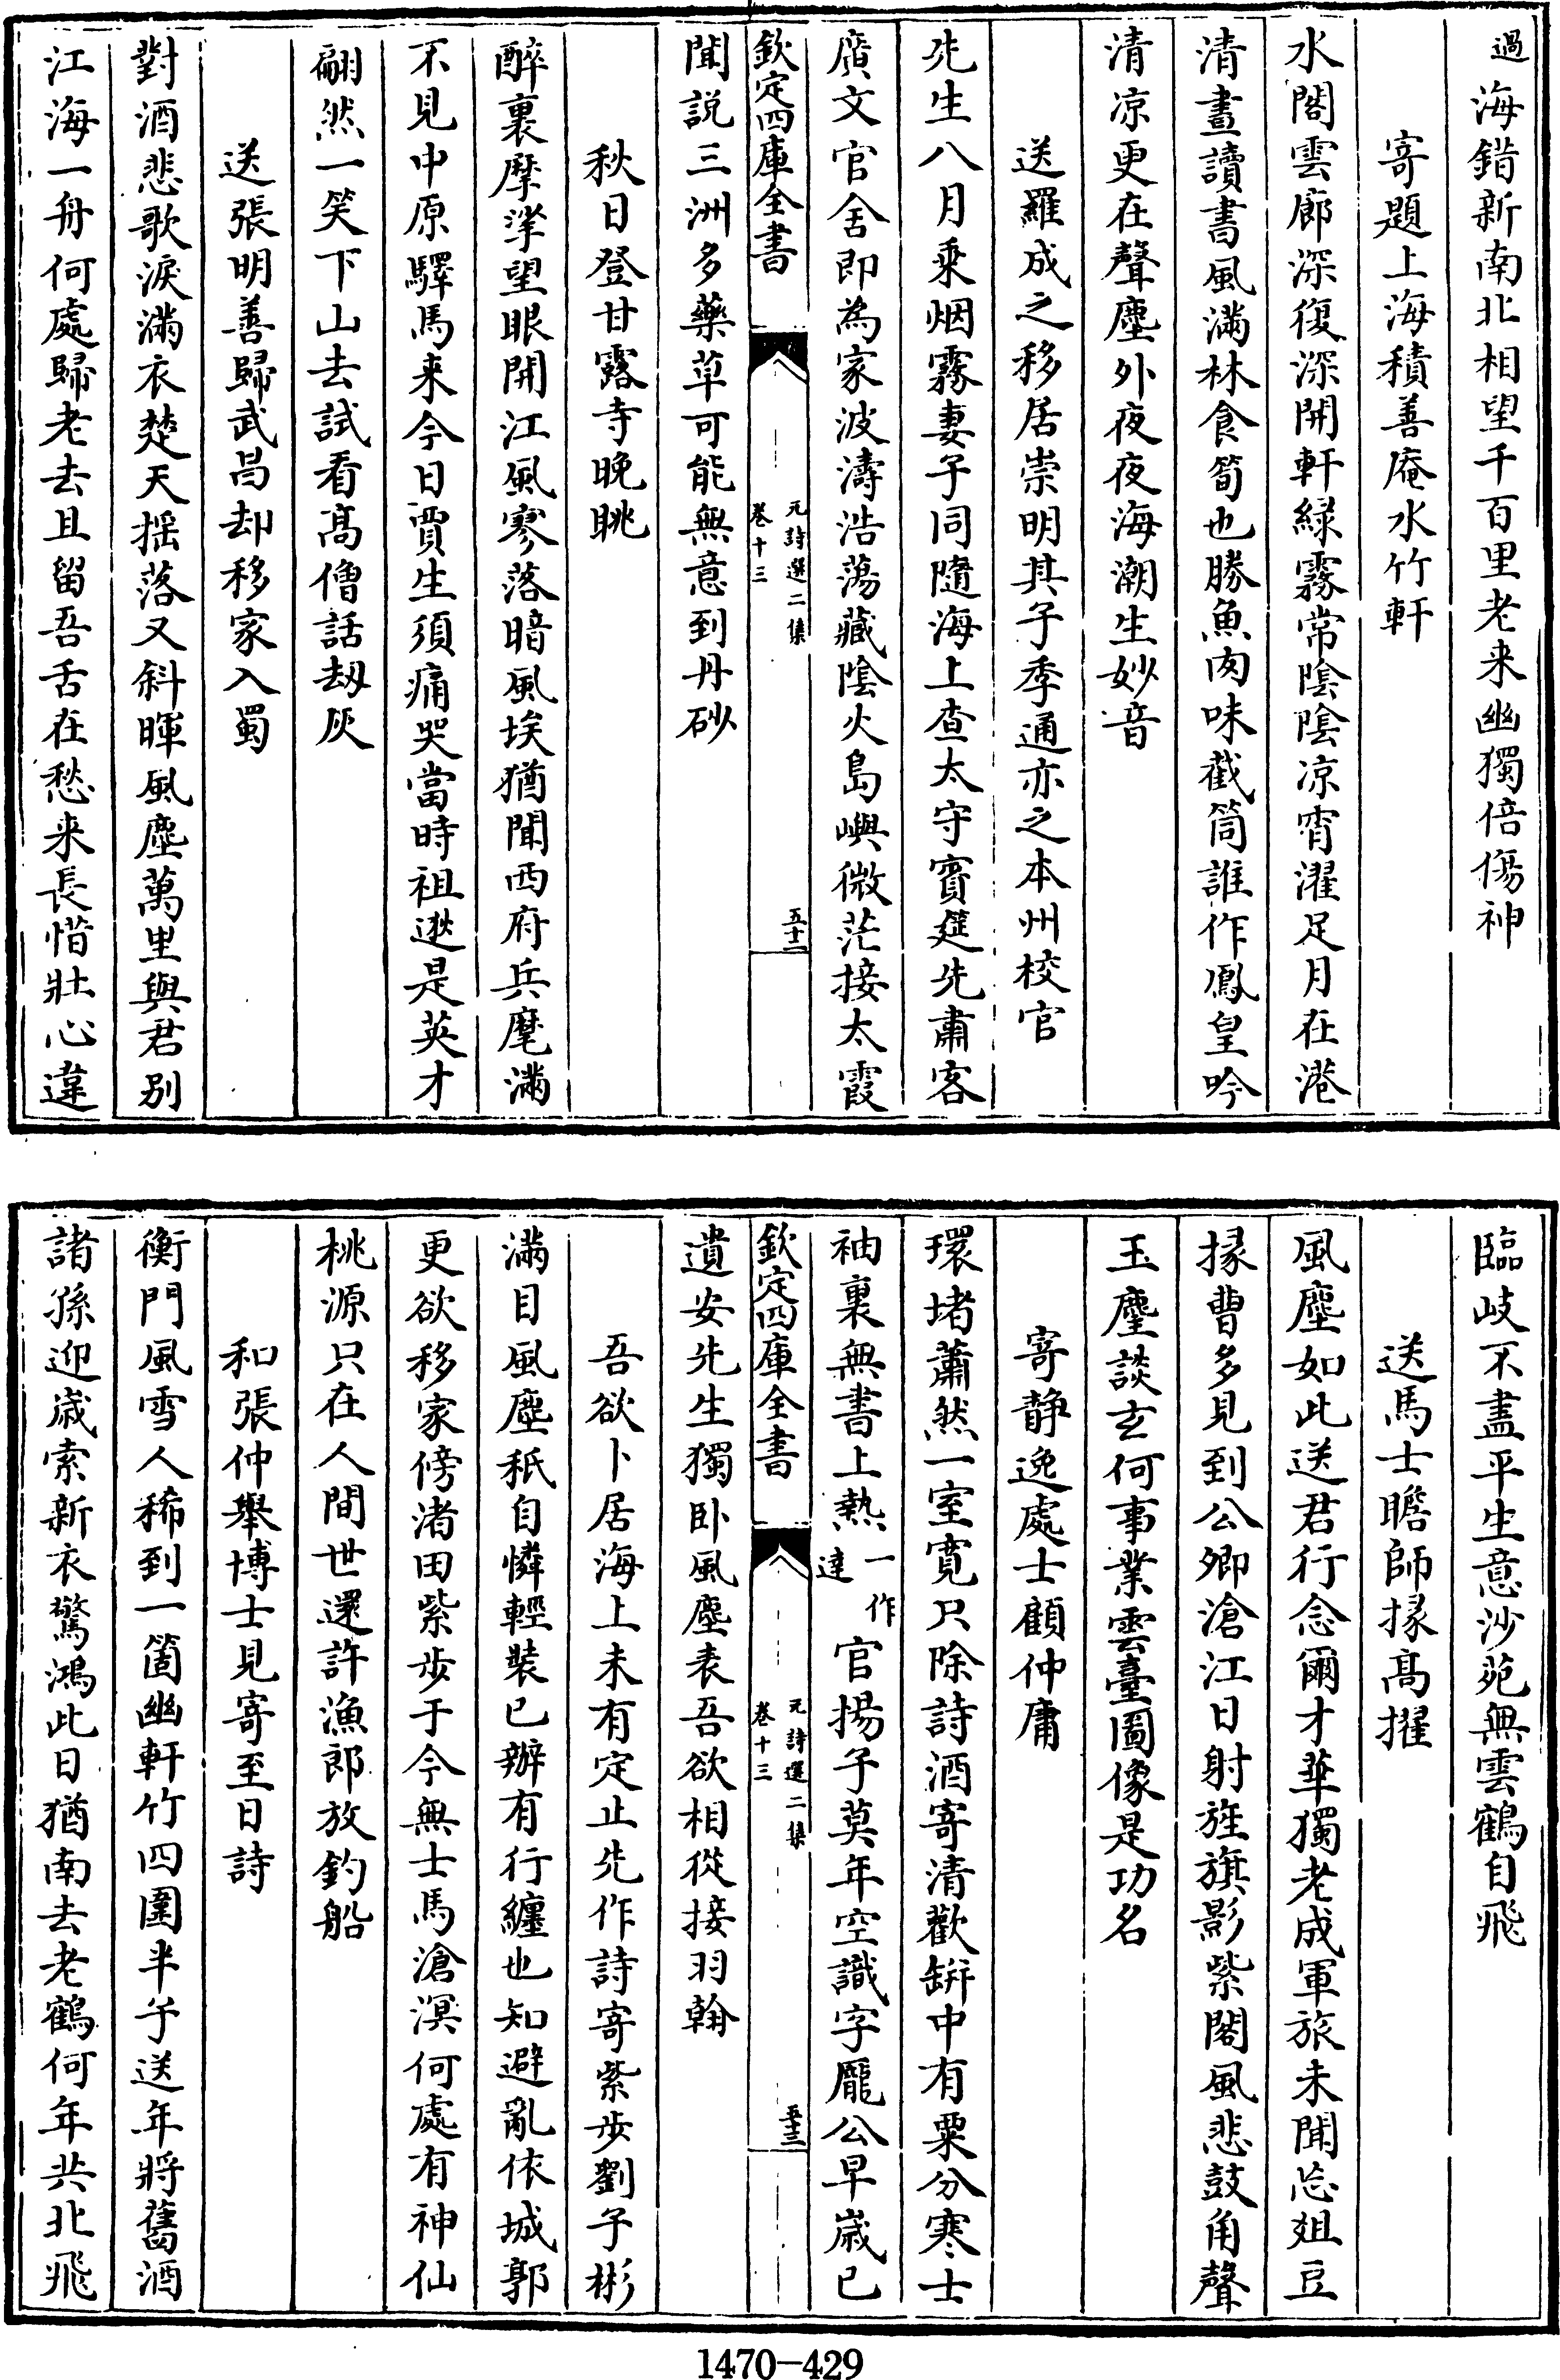 過海錯新南北相望千百里老来幽獨倍傷神
寄題上海積善庵水竹軒
水閣雲廊深復深開軒緑霧常陰陰凉宵濯足月在港
清晝讀書風滿林食筍也勝魚肉味截筒誰作鳳皇吟
清凉更在聲塵外夜夜海潮生妙音
送羅成之移居崇明其子季通亦之本州校官
先生八月乗烟霧妻子同隨海上查太守賓筵先肅客
廣文官舍即為家波濤浩蕩藏陰火島嶼微茫接太霞
欽定四庫全書
元詩選二集
卷十三
五十二
聞説三洲多藥草可能無意到丹砂
秋日登甘露寺晚眺
醉裏摩挲望眼開江風寥落暗風埃猶聞西府兵麾滿
不見中原驛馬来今日賈生須痛哭當時祖逖是英才
翩然一笑下山去試看髙僧話刼灰
送張明善歸武昌却移家入蜀
對酒悲歌淚滿衣楚天揺落又斜暉風塵萬里與君别
江海一舟何處歸老去且留吾舌在愁来長惜壯心違
臨岐不盡平生意沙苑無雲鶴自飛
送馬士瞻師掾髙擢
風塵如此送君行念爾才華獨老成軍旅未聞忘爼豆
掾曹多見到公卿滄江日射旌旗影紫閣風悲鼓角聲
玉麈談玄何事業雲臺圖像是功名
寄静逸處士顧仲庸
環堵蕭然一室寛只除詩酒寄清歡缾中有粟分寒士
袖裏無書上熱一作達官揚子莫年空識字龎公早嵗已
欽定四庫全書
元詩選二集
卷十三
五十三
遺安先生獨卧風塵表吾欲相從接羽翰
吾欲卜居海上未有定止先作詩寄紫步劉子彬
滿目風塵秖自憐輕裝已辦有行纏也知避亂依城郭
更欲移家傍渚田紫步于今無士馬滄溟何處有神仙
桃源只在人間世還許漁郎放釣船
和張仲舉博士見寄至日詩
衡門風雪人稀到一箇幽軒竹四圍半ّ子送年將舊酒
諸孫迎嵗索新衣驚鴻此日猶南去老鶴何年共北飛
1470-429